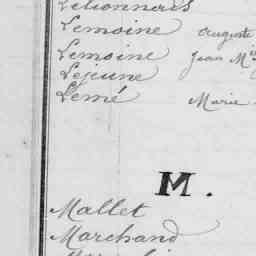 Lemoine Auguste
Lemoine Jean M
Lejeune
Lemé Marie
M.
Mallet
Marchand